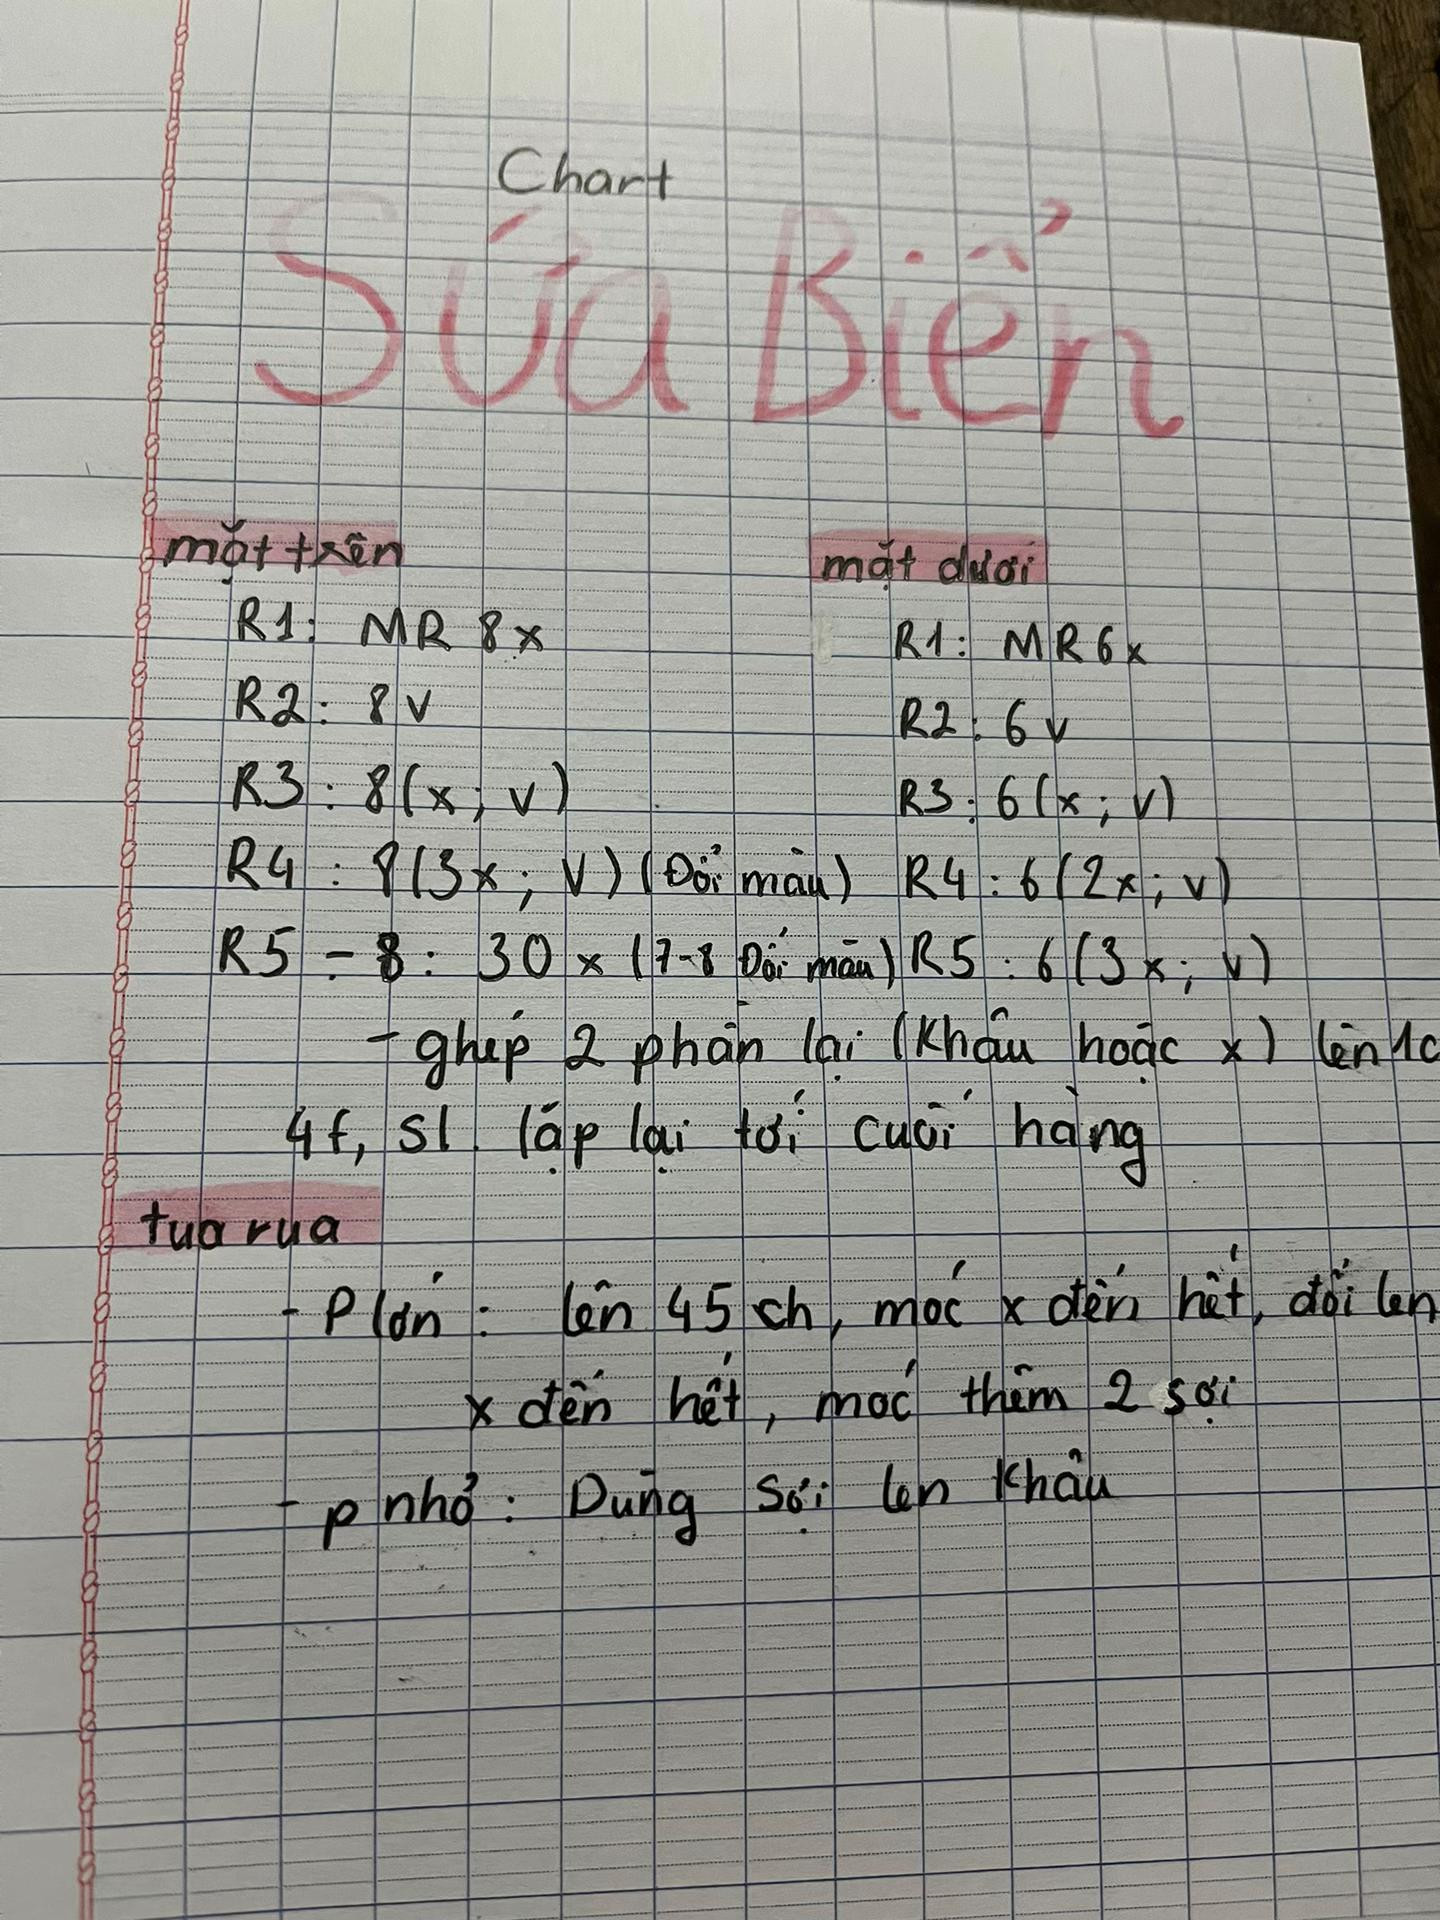 Chart
Sứa Biển
mặt trên
R1: MR 8x
R2: 8v
R3: 8(x; v)
R4: 8(3x; v) (Đổi màu)
R5 - 8: 30x (7-8 Đổi màu)
mặt dưới
R1: MR 6x
R2: 6v
R3: 6(x; v)
R4: 6(2x; v)
R5: 6(3x; v)
- ghép 2 phần lại (khâu hoặc x) lên 1c
4f, sl. lặp lại tới cuối hàng
tua rua
- P lớn: lên 45 ch, móc x đến hết, đổi len
x đến hết, móc thêm 2 sợi
- p nhỏ: Dùng Sợi len Khâu